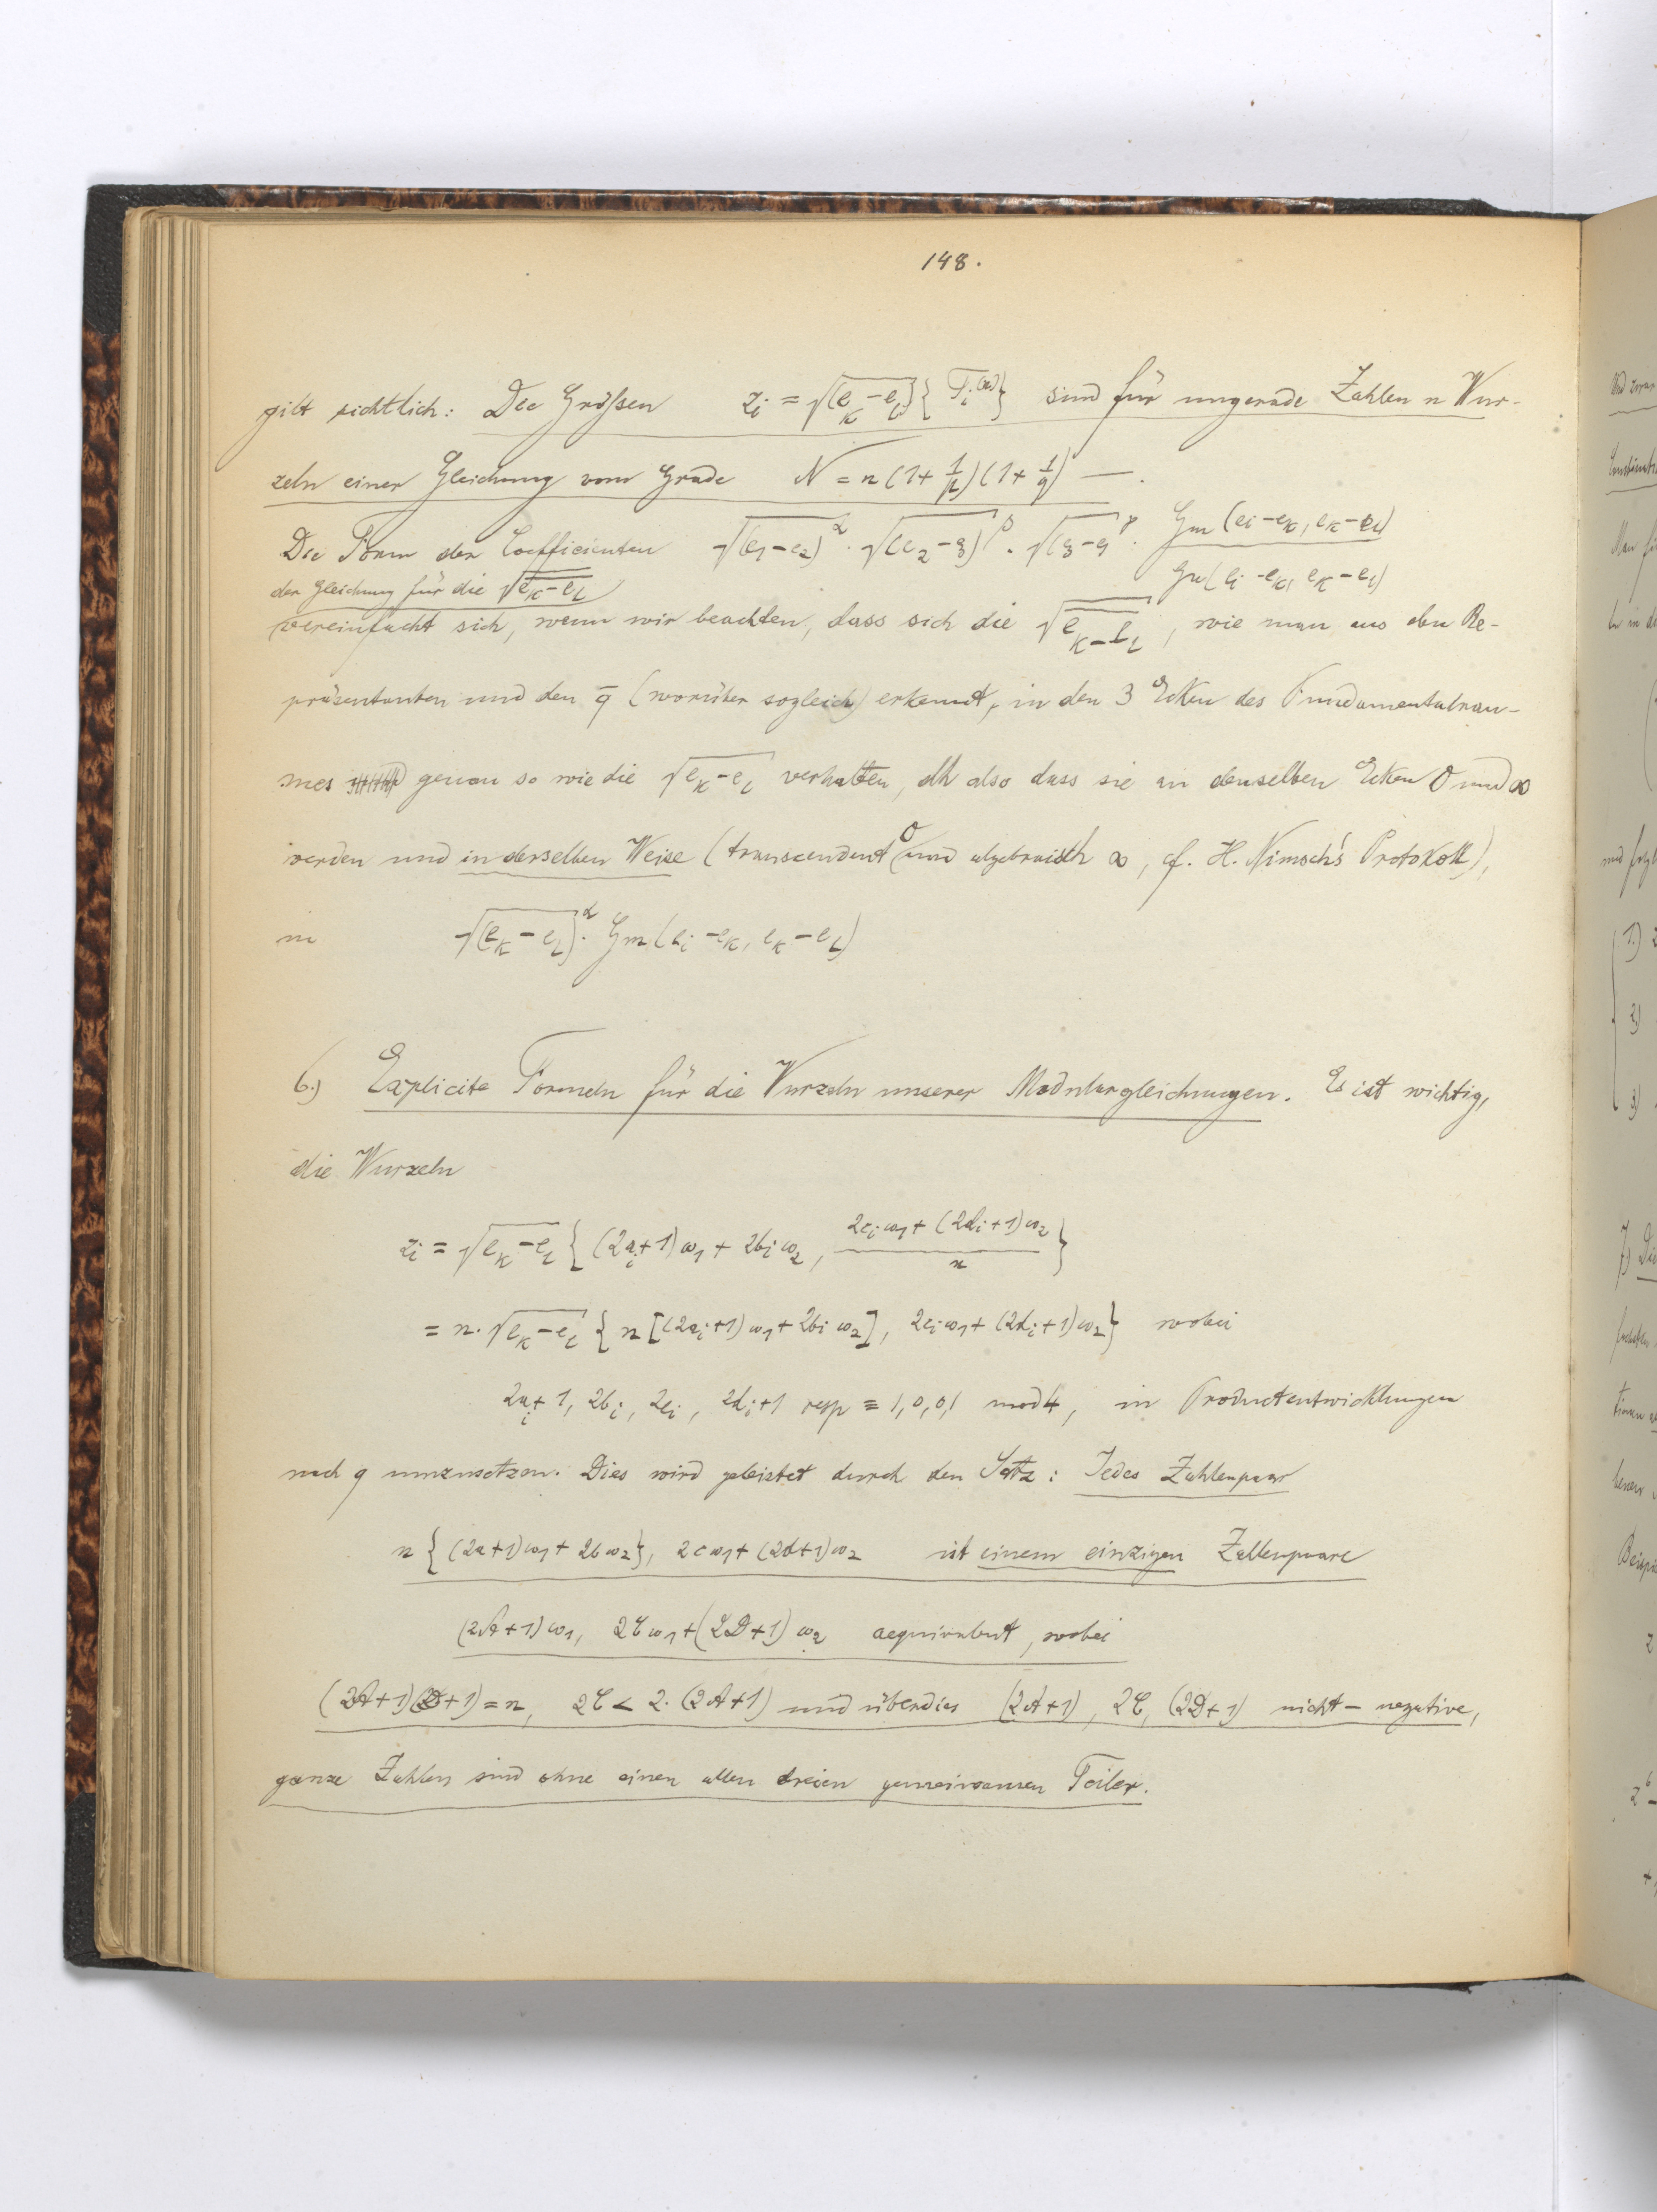 148.
gilt sichtlich: Die Größen z_i = √(e_k − e_l) {T_i^(n)} sind für ungerade Zahlen n Wur-
zeln einer Gleichung vom Grade N = n (1 + 1/p) (1 + 1/q) — .
Die Form der Coefficienten √(e_1 − e_2)^α · √(e_2 − e_3)^β · √(e_3 − e_1)^γ · G_m (e_i − e_k, e_k − e_l) / G_n (e_i − e_k, e_k − e_l)
der Gleichung für die √(e_k − e_l)
vereinfacht sich, wenn wir beachten, dass sich die √(e_k − e_l), wie man aus den Re-
präsentanten und den q (worüber sogleich) erkennt, in den 3 Ecken des Fundamentalrau-
mes genau so wie die √(e_k − e_l) verhalten, dh also dass sie an denselben Ecken 0 und ∞
werden und in derselben Weise (transcendent 0 und algebraisch ∞, cf. H. Nimsch's Protokoll),
in √(e_k − e_l)^α · G_m (e_i − e_k, e_k − e_l)
6.) Explicite Formeln für die Wurzeln unserer Modulargleichungen. Es ist wichtig,
die Wurzeln
z_i = √(e_k − e_l) { (2a_i + 1) ω_1 + 2b_i ω_2, (2c_i ω_1 + (2d_i + 1) ω_2) / n }
= n · √(e_k − e_l) { n [(2a_i + 1) ω_1 + 2b_i ω_2], 2c_i ω_1 + (2d_i + 1) ω_2 } wobei
2a_i + 1, 2b_i, 2c_i, 2d_i + 1 resp ≡ 1, 0, 0, 1 mod 4, in Productentwicklungen
nach q umzusetzen. Dies wird geleistet durch den Satz: Jedes Zahlenpaar
n {(2a + 1) ω_1 + 2b ω_2}, 2c ω_1 + (2d + 1) ω_2 ist einem einzigen Zahlenpaare
(2A + 1) ω_1, 2C ω_1 + (2D + 1) ω_2 aequivalent, wobei
(2A + 1) (2D + 1) = n, 2C < 2. (2A + 1) und überdies (2A + 1), 2C, (2D + 1) nicht – negative,
ganze Zahlen sind ohne einen allen dreien gemeinsamen Teiler.